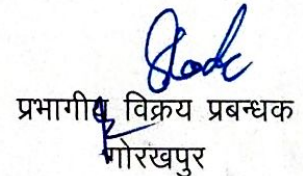 प्रभागीय विक्रय प्रबन्धक
गोरखपुर